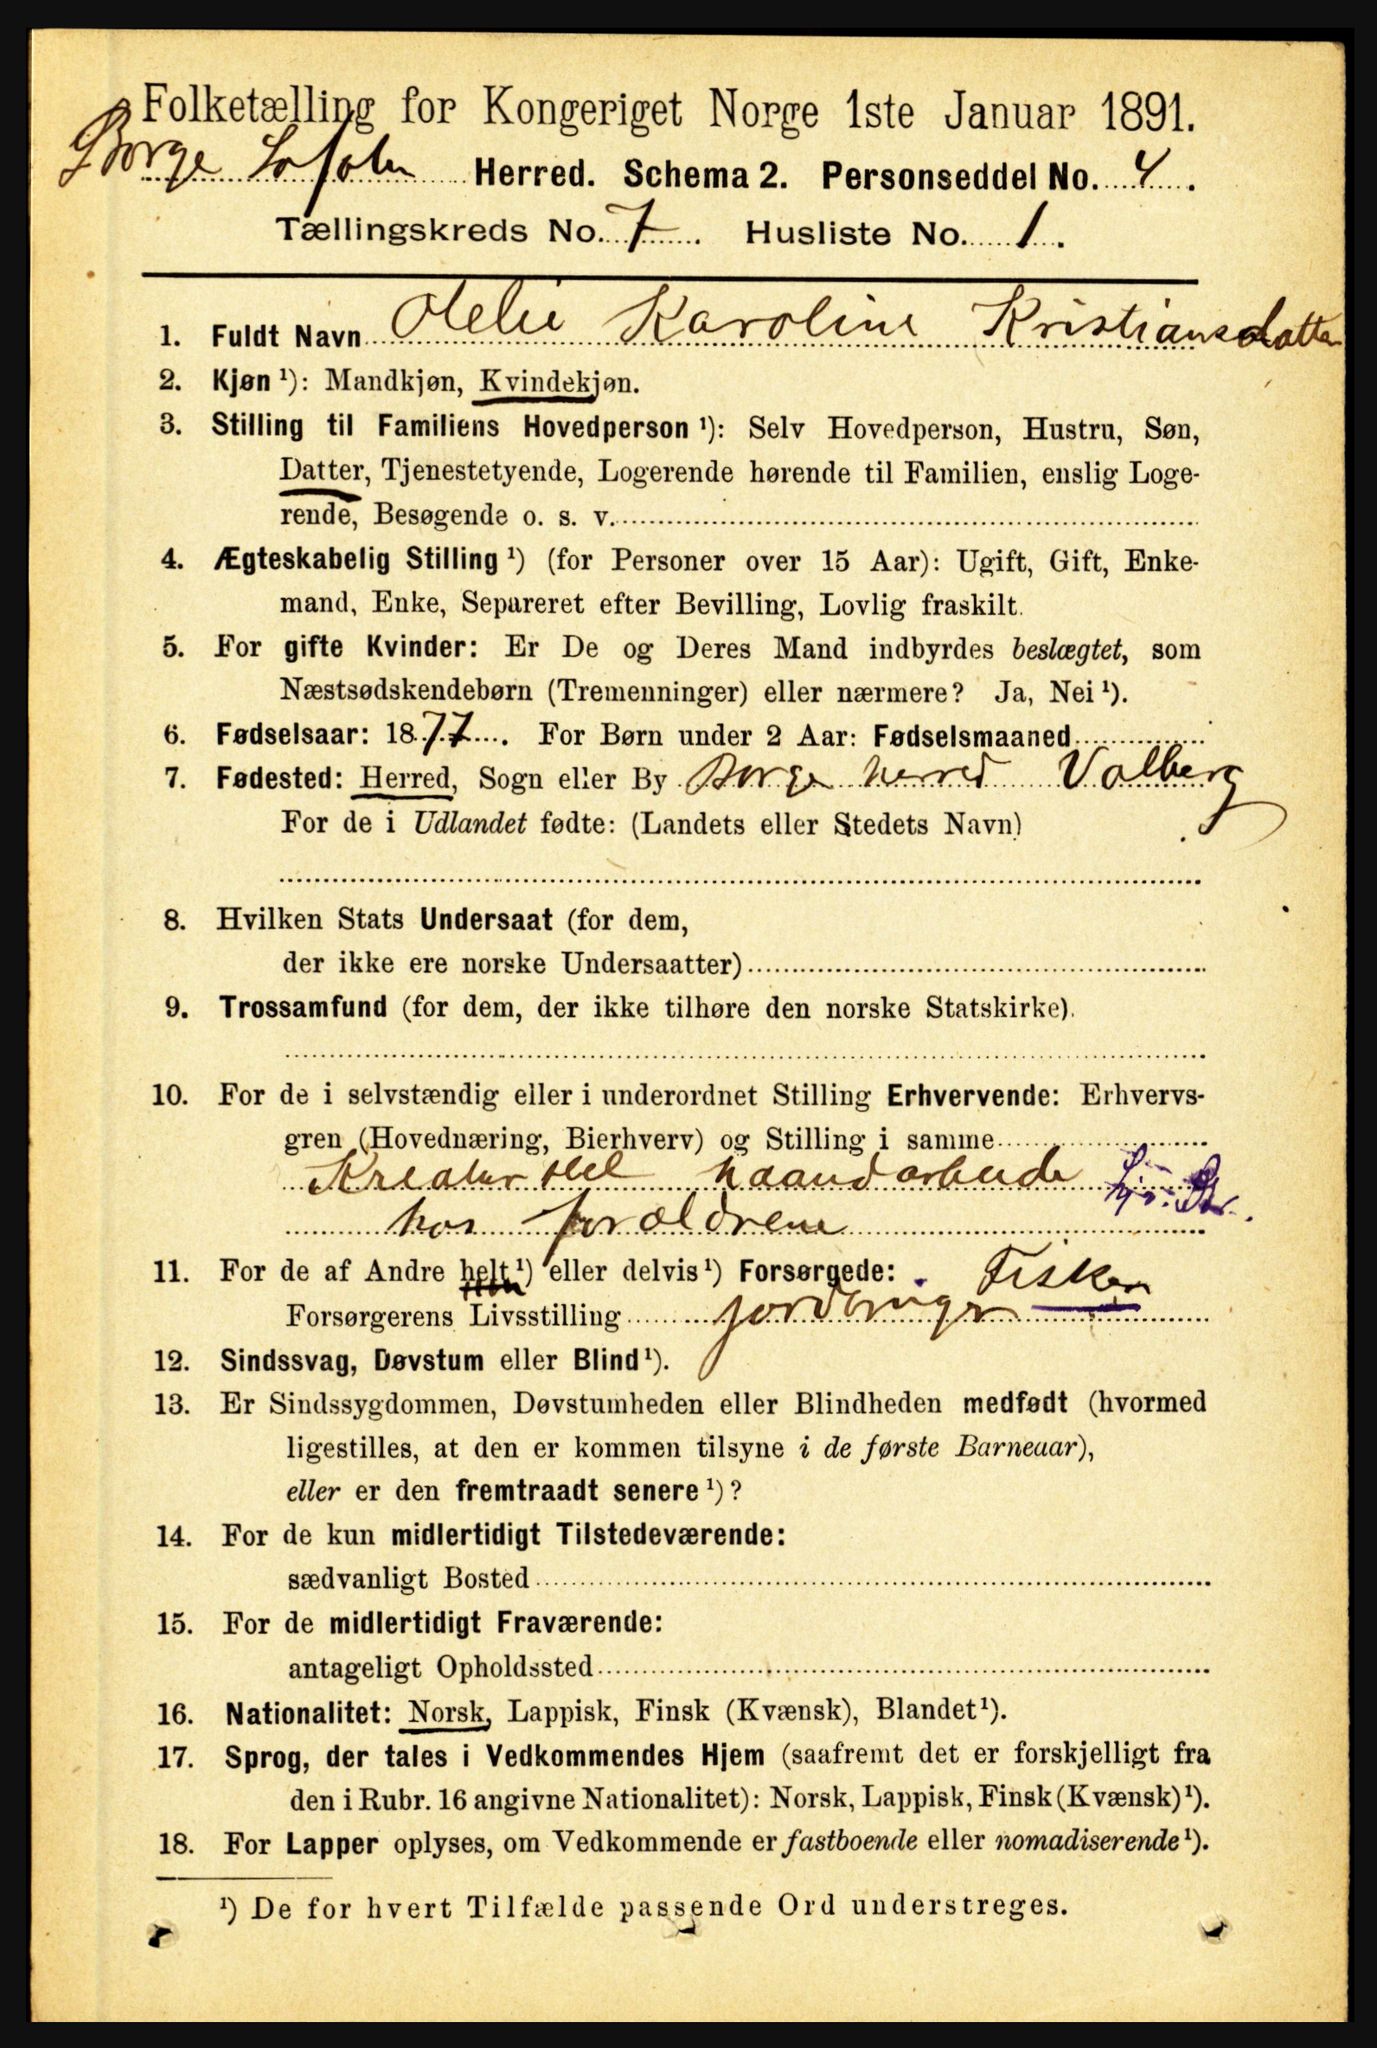 Folketælling for Kongeriget Norge 1ste Januar 1891.
Borge Lofoten Herred. Schema 2. Personseddel No. 4.
Tællingskreds No. 7. Husliste No. 1.
1. Fuldt Navn Otelie Karoline Kristiansdatter
2. Kjøn ¹): Mandkjøn, Kvindekjøn.
3. Stilling til Familiens Hovedperson ¹): Selv Hovedperson, Hustru, Søn,
Datter, Tjenestetyende, Logerende hørende til Familien, enslig Loge-
rende, Besøgende o. s. v.
4. Ægteskabelig Stilling ¹) (for Personer over 15 Aar): Ugift, Gift, Enke-
mand, Enke, Separeret efter Bevilling, Lovlig fraskilt.
5. For gifte Kvinder: Er De og Deres Mand indbyrdes beslægtet, som
Næstsødskendebørn (Tremenninger) eller nærmere? Ja, Nei ¹).
6. Fødselsaar: 1877. For Børn under 2 Aar: Fødselsmaaned
7. Fødested: Herred, Sogn eller By Borge herred Valberg
For de i Udlandet fødte: (Landets eller Stedets Navn)
8. Hvilken Stats Undersaat (for dem,
der ikke ere norske Undersaatter)
9. Trossamfund (for dem, der ikke tilhøre den norske Statskirke).
10. For de i selvstændig eller i underordnet Stilling Erhvervende: Erhvervs-
gren (Hovednæring, Bierhverv) og Stilling i samme
Kreaturstel haandarbeide
hos forældrene
11. For de af Andre helt ¹) eller delvis ¹) Forsørgede: Fisker
Forsørgerens Livsstilling jordbruger
12. Sindssvag, Døvstum eller Blind ¹).
13. Er Sindssygdommen, Døvstumheden eller Blindheden medfødt (hvormed
ligestilles, at den er kommen tilsyne i de første Barneaar),
eller er den fremtraadt senere ¹)?
14. For de kun midlertidigt Tilstedeværende:
sædvanligt Bosted
15. For de midlertidigt Fraværende:
antageligt Opholdssted
16. Nationalitet: Norsk, Lappisk, Finsk (Kvænsk), Blandet ¹).
17. Sprog, der tales i Vedkommendes Hjem (saafremt det er forskjelligt fra
den i Rubr. 16 angivne Nationalitet): Norsk, Lappisk, Finsk (Kvænsk) ¹).
18. For Lapper oplyses, om Vedkommende er fastboende eller nomadiserende ¹).
¹) De for hvert Tilfælde passende Ord understreges.